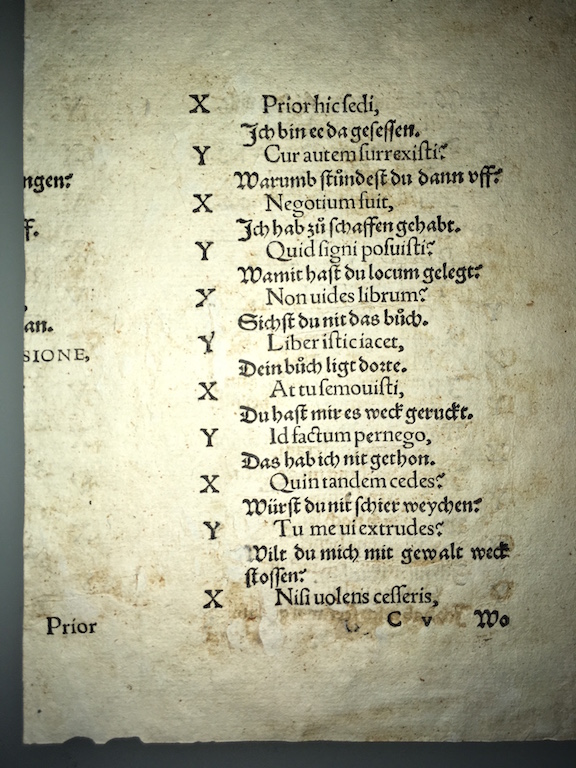 ngen?
f.
an.
SIONE,
Prior
X Prior hic ſedi,
Ich bin ee da geſeſſen.
Y Cur autem ſurrexiſti?
Warumb ſtůndeſt du dann vff?
X Negotium fuit,
Ich hab zů ſchaffen gehabt.
Y Quid ſigni poſuiſti?
Wamit haſt du locum gelegt?
X Non uides librum?
Sichſt du nit das bůch.
Y Liber iſtic iacet,
Dein bůch ligt dorte.
X At tu ſemouiſti,
Du haſt mir es weck geruckt.
Y Id factum pernego,
Das hab ich nit gethon.
X Quin tandem cedes?
Würſt du nit ſchier weychen?
Y Tu me ui extrudes?
Wilt du mich mit gewalt weck
ſtoſſen?
X Niſi uolens ceſſeris,
C v Wo